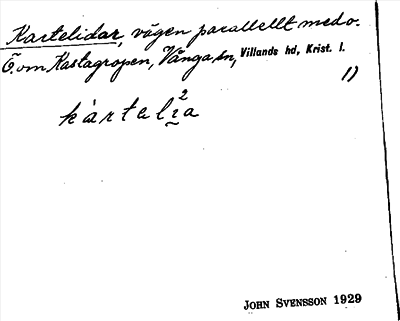 Kartelidar, vägen parallellt med o.
Ö. om Kastagropen, Vånga sn, Villands hd, Krist. l.
1)
kàrtalı̯²a
JOHN SVENSSON 1929